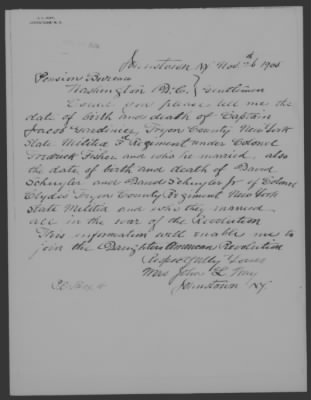 Johnstown NY Nov. 26th 1905
Pension Bureau
Washington D.C. } Gentlemen
Could you please tell me the
date of birth and death of Captain
Jacob Gardinier, Tryon County New York
State Militia 3d Regiment under Colonel
Fredrick Fisher and who he married, also
the date of birth and death of David
Schuyler and David Schuyler Jr of Colonel
Clydes Tryon County Regiment New York
State Militia and who they married
all in the war of the Revolution
This information will enable me to
join the Daughters American Revolution
Respectfully Yours
Mrs John L.
Johnstown NY.